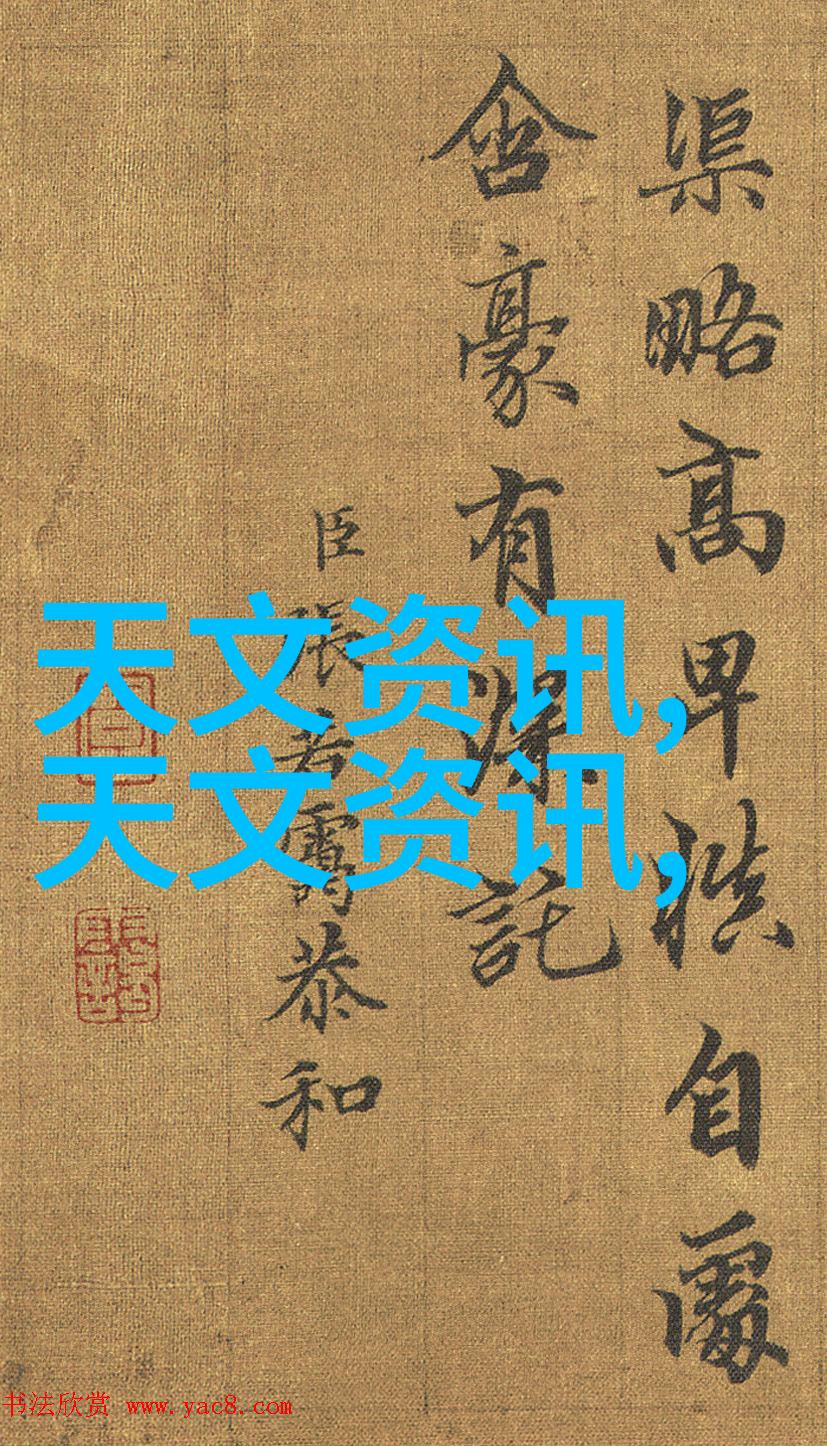 渠略高卑穊自處
含豪有㵸託
臣張若靄恭和
天文资讯,
天文资讯,
书法欣赏 www.yac8.com